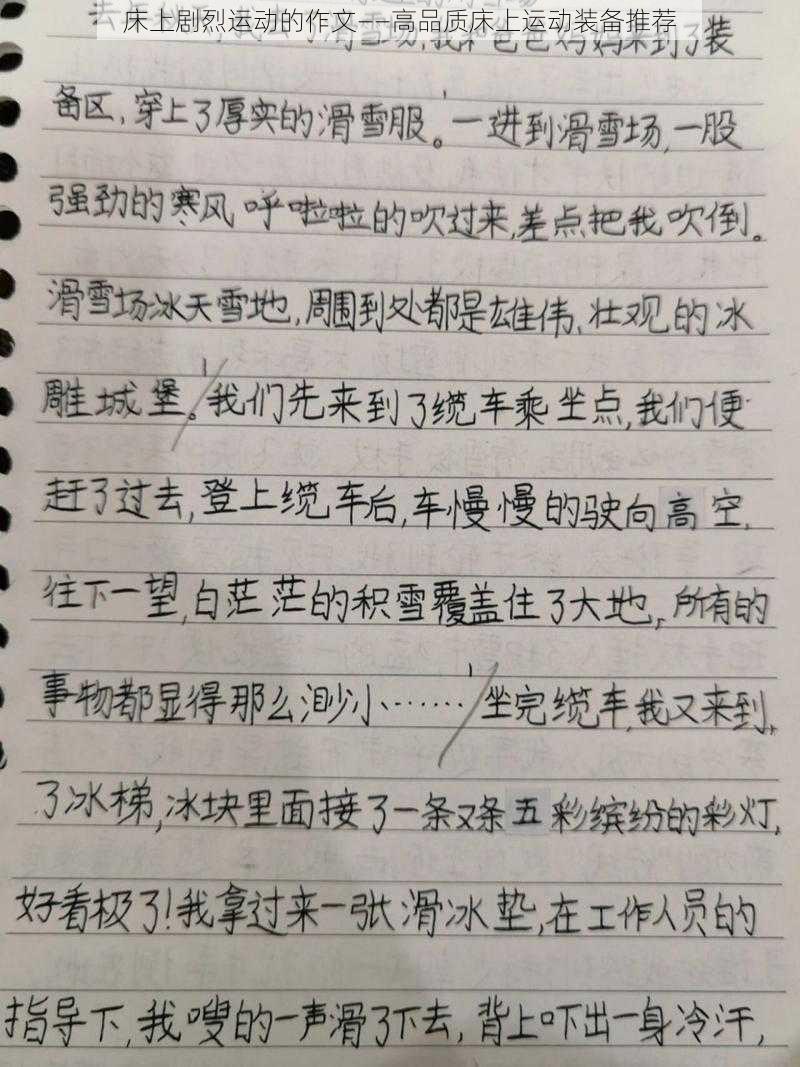 床上剧烈运动的作文——高品质床上运动装备推荐
滑雪场,我和爸爸妈妈来到了装
备区,穿上了厚实的滑雪服。一进到滑雪场,一股
强劲的寒风呼啦啦的吹过来,差点把我吹倒。
滑雪场冰天雪地,周围到处都是雄伟、壮观的冰
雕城堡。我们先来到了缆车乘坐点,我们便
赶了过去,登上缆车后,车慢慢的驶向高空,
往下一望,白茫茫的积雪覆盖住了大地,所有的
事物都显得那么渺小、……坐完缆车,我又来到,
了冰梯,冰块里面接了一条又条五彩缤纷的彩灯,
好看极了!我拿过来一张滑冰垫,在工作人员的
指导下,我嗖的一声滑了下去,背上吓出一身冷汗,